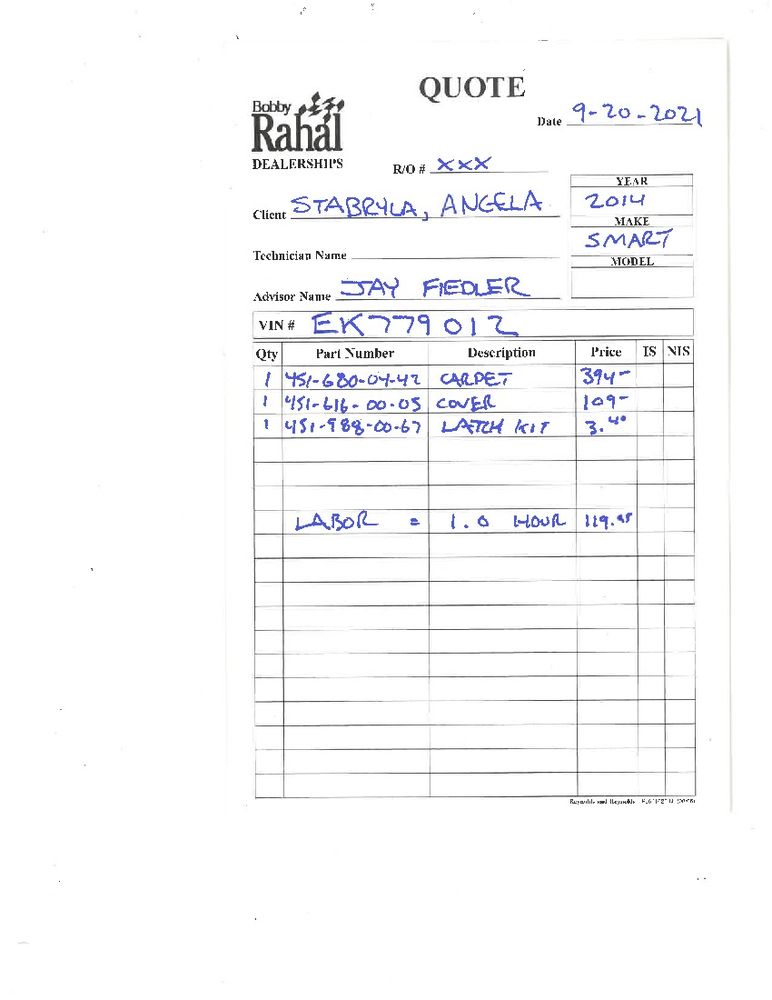 QUOTE
Bobby
Rahal
DEALERSHIPS
Date 9-20-2021
R/O # XXX
YEAR
2014
Client STABRYLA, ANGELA
MAKE
SMART
Technician Name
MODEL
Advisor Name JAY FIEDLER
VIN # EK779012
Qty Part Number Description Price IS NIS
1 451-680-04-42 CARPET 394-
1 451-616-00-05 COVER 109-
1 451-988-00-67 LATCH KIT 3.40
LABOR = 1.0 HOUR 119.95
Reynolds and Reynolds